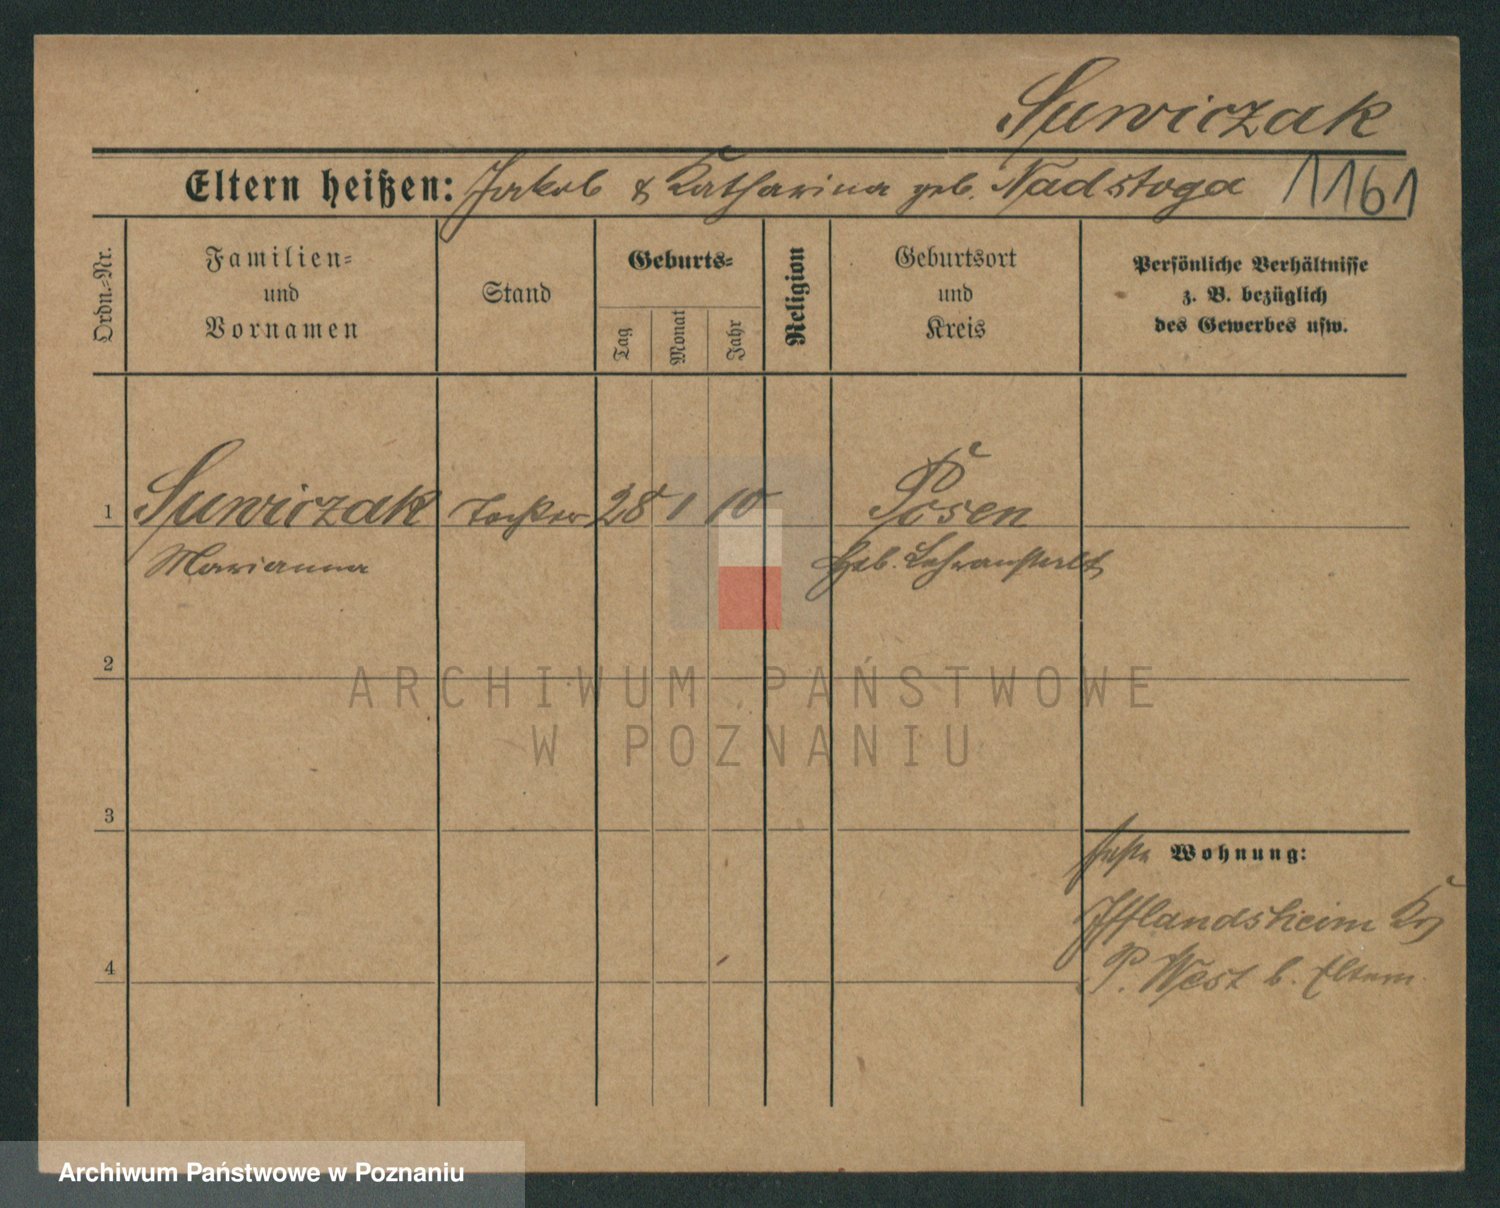 Suwiczak
Eltern heißen: Jakob & Katharina geb. Nadstoga 1161
Ordn.-Nr.
Familien-
und
Vornamen
Stand
Geburts-
Tag
Monat
Jahr
Religion
Geburtsort
und
Kreis
Persönliche Verhältnisse
z. B. bezüglich
des Gewerbes usw.
1
Suwiczak
Marianna
Tochter
28
1
10
Posen
Heb. Lehranstalt
2
3
4
Wohnung:
Ifflandsheim Kr
P. West b. Eltern.
ARCHIWUM PAŃSTWOWE
W POZNANIU
Archiwum Państwowe w Poznaniu